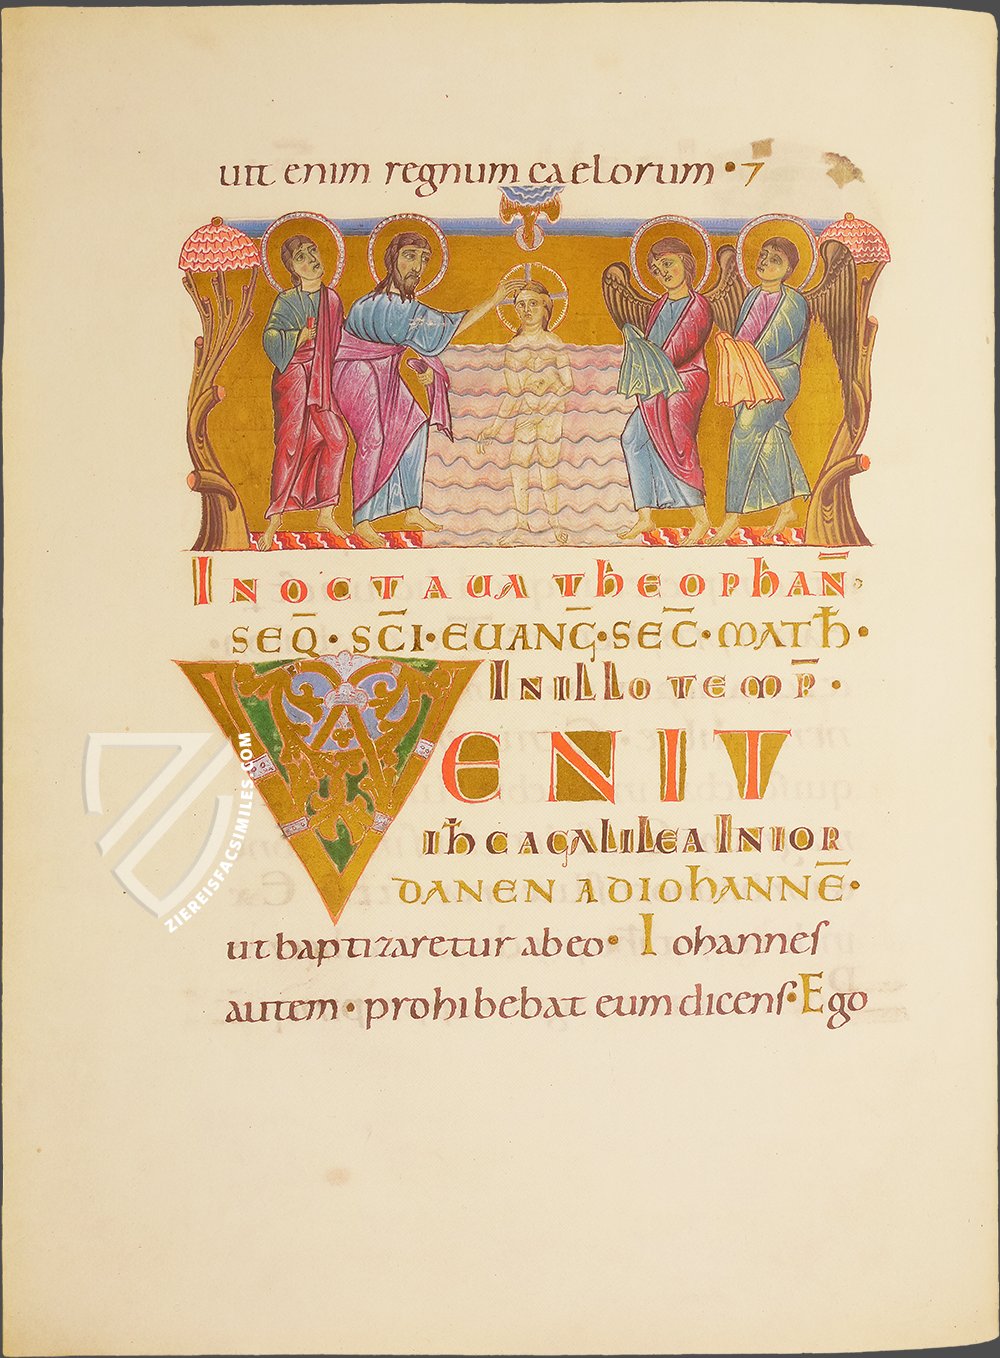 utt enim regnum caelorum · 7
IN OCTAVA THEOPHAN̄.
SEQ̄ · SC̄I · EUANḠ · SEC̄ · MATH̄ ·
IN ILLO TEMP̄ ·
VENIT
IH̄C A GALILEA IN IOR
DANEN AD IOHANNĒ ·
ut baptizaretur ab eo · Iohannes
autem · prohibebat eum dicens · Ego
ZIEREISFACSIMILES.COM